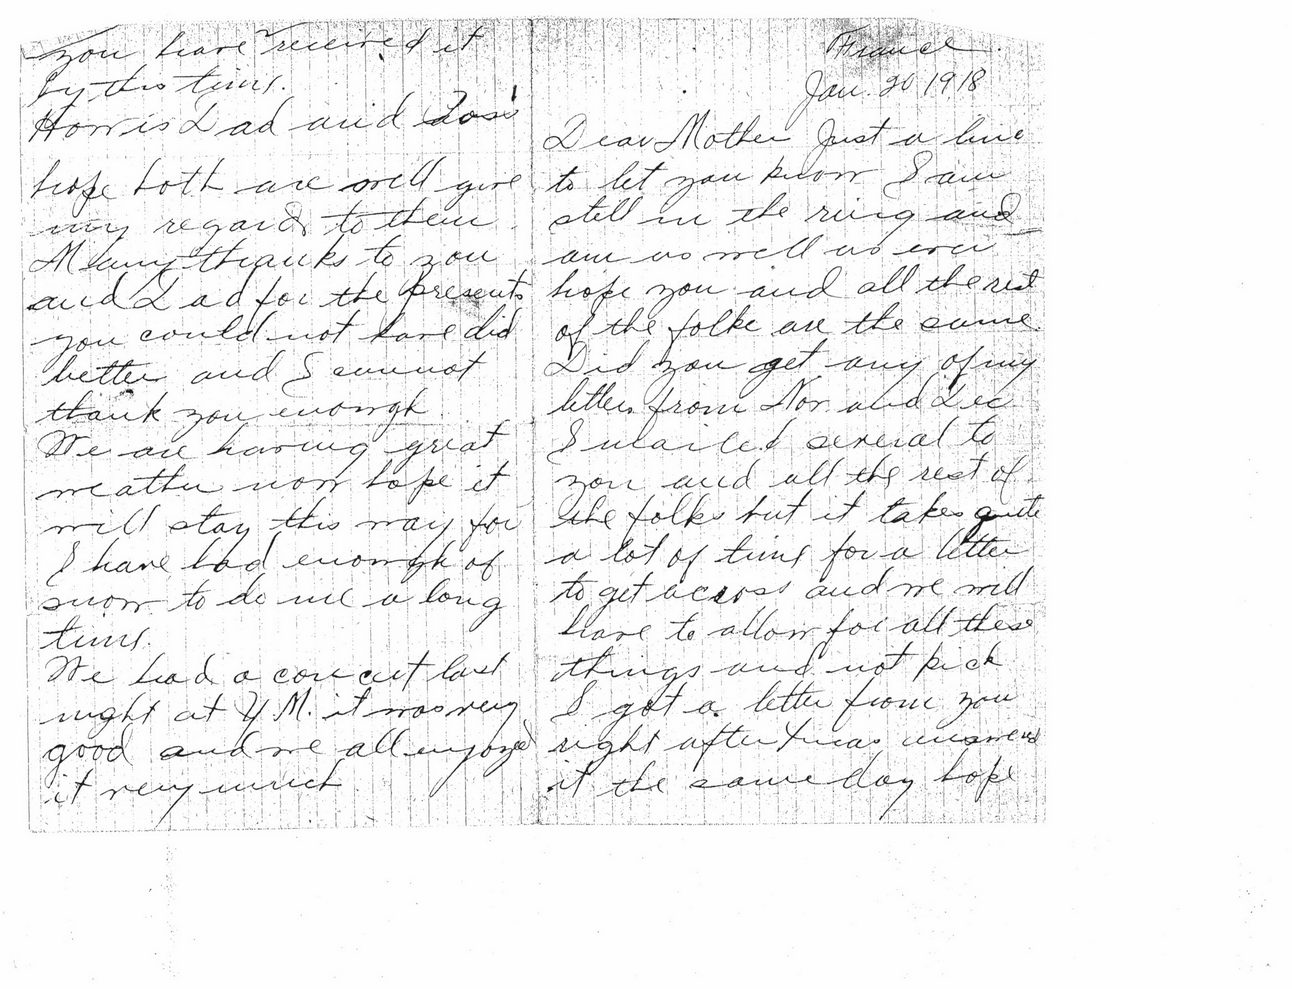 France
Jan. 20 1918
Dear Mother Just a line
to let you know I am
still in the ring and
am as well as ever
hope you and all the rest
of the folks are the same.
Did you get any of my
letters from Nov. and Dec.
I mailed several to
you and all the rest of
the folks but it takes quite
a lot of time for a letter
to get across and we will
have to allow for all these
things and not kick
I got a letter from you
right after Xmas answered
it the same day hope
you have received it
by this time.
How is Dad and
hope both are well give
my regards to them.
Many thanks to you
and Dad for the presents
you could not have did
better and I cannot
thank you enough.
We are having great
weather now hope it
will stay this way for
I have had enough of
snow to do me a long
time.
We had a concert last
night at Y.M. it was very
good and we all enjoyed
it very much